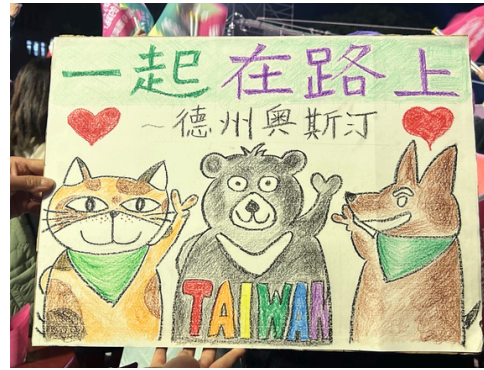 一起在路上
~德州奧斯汀
TAIWAN